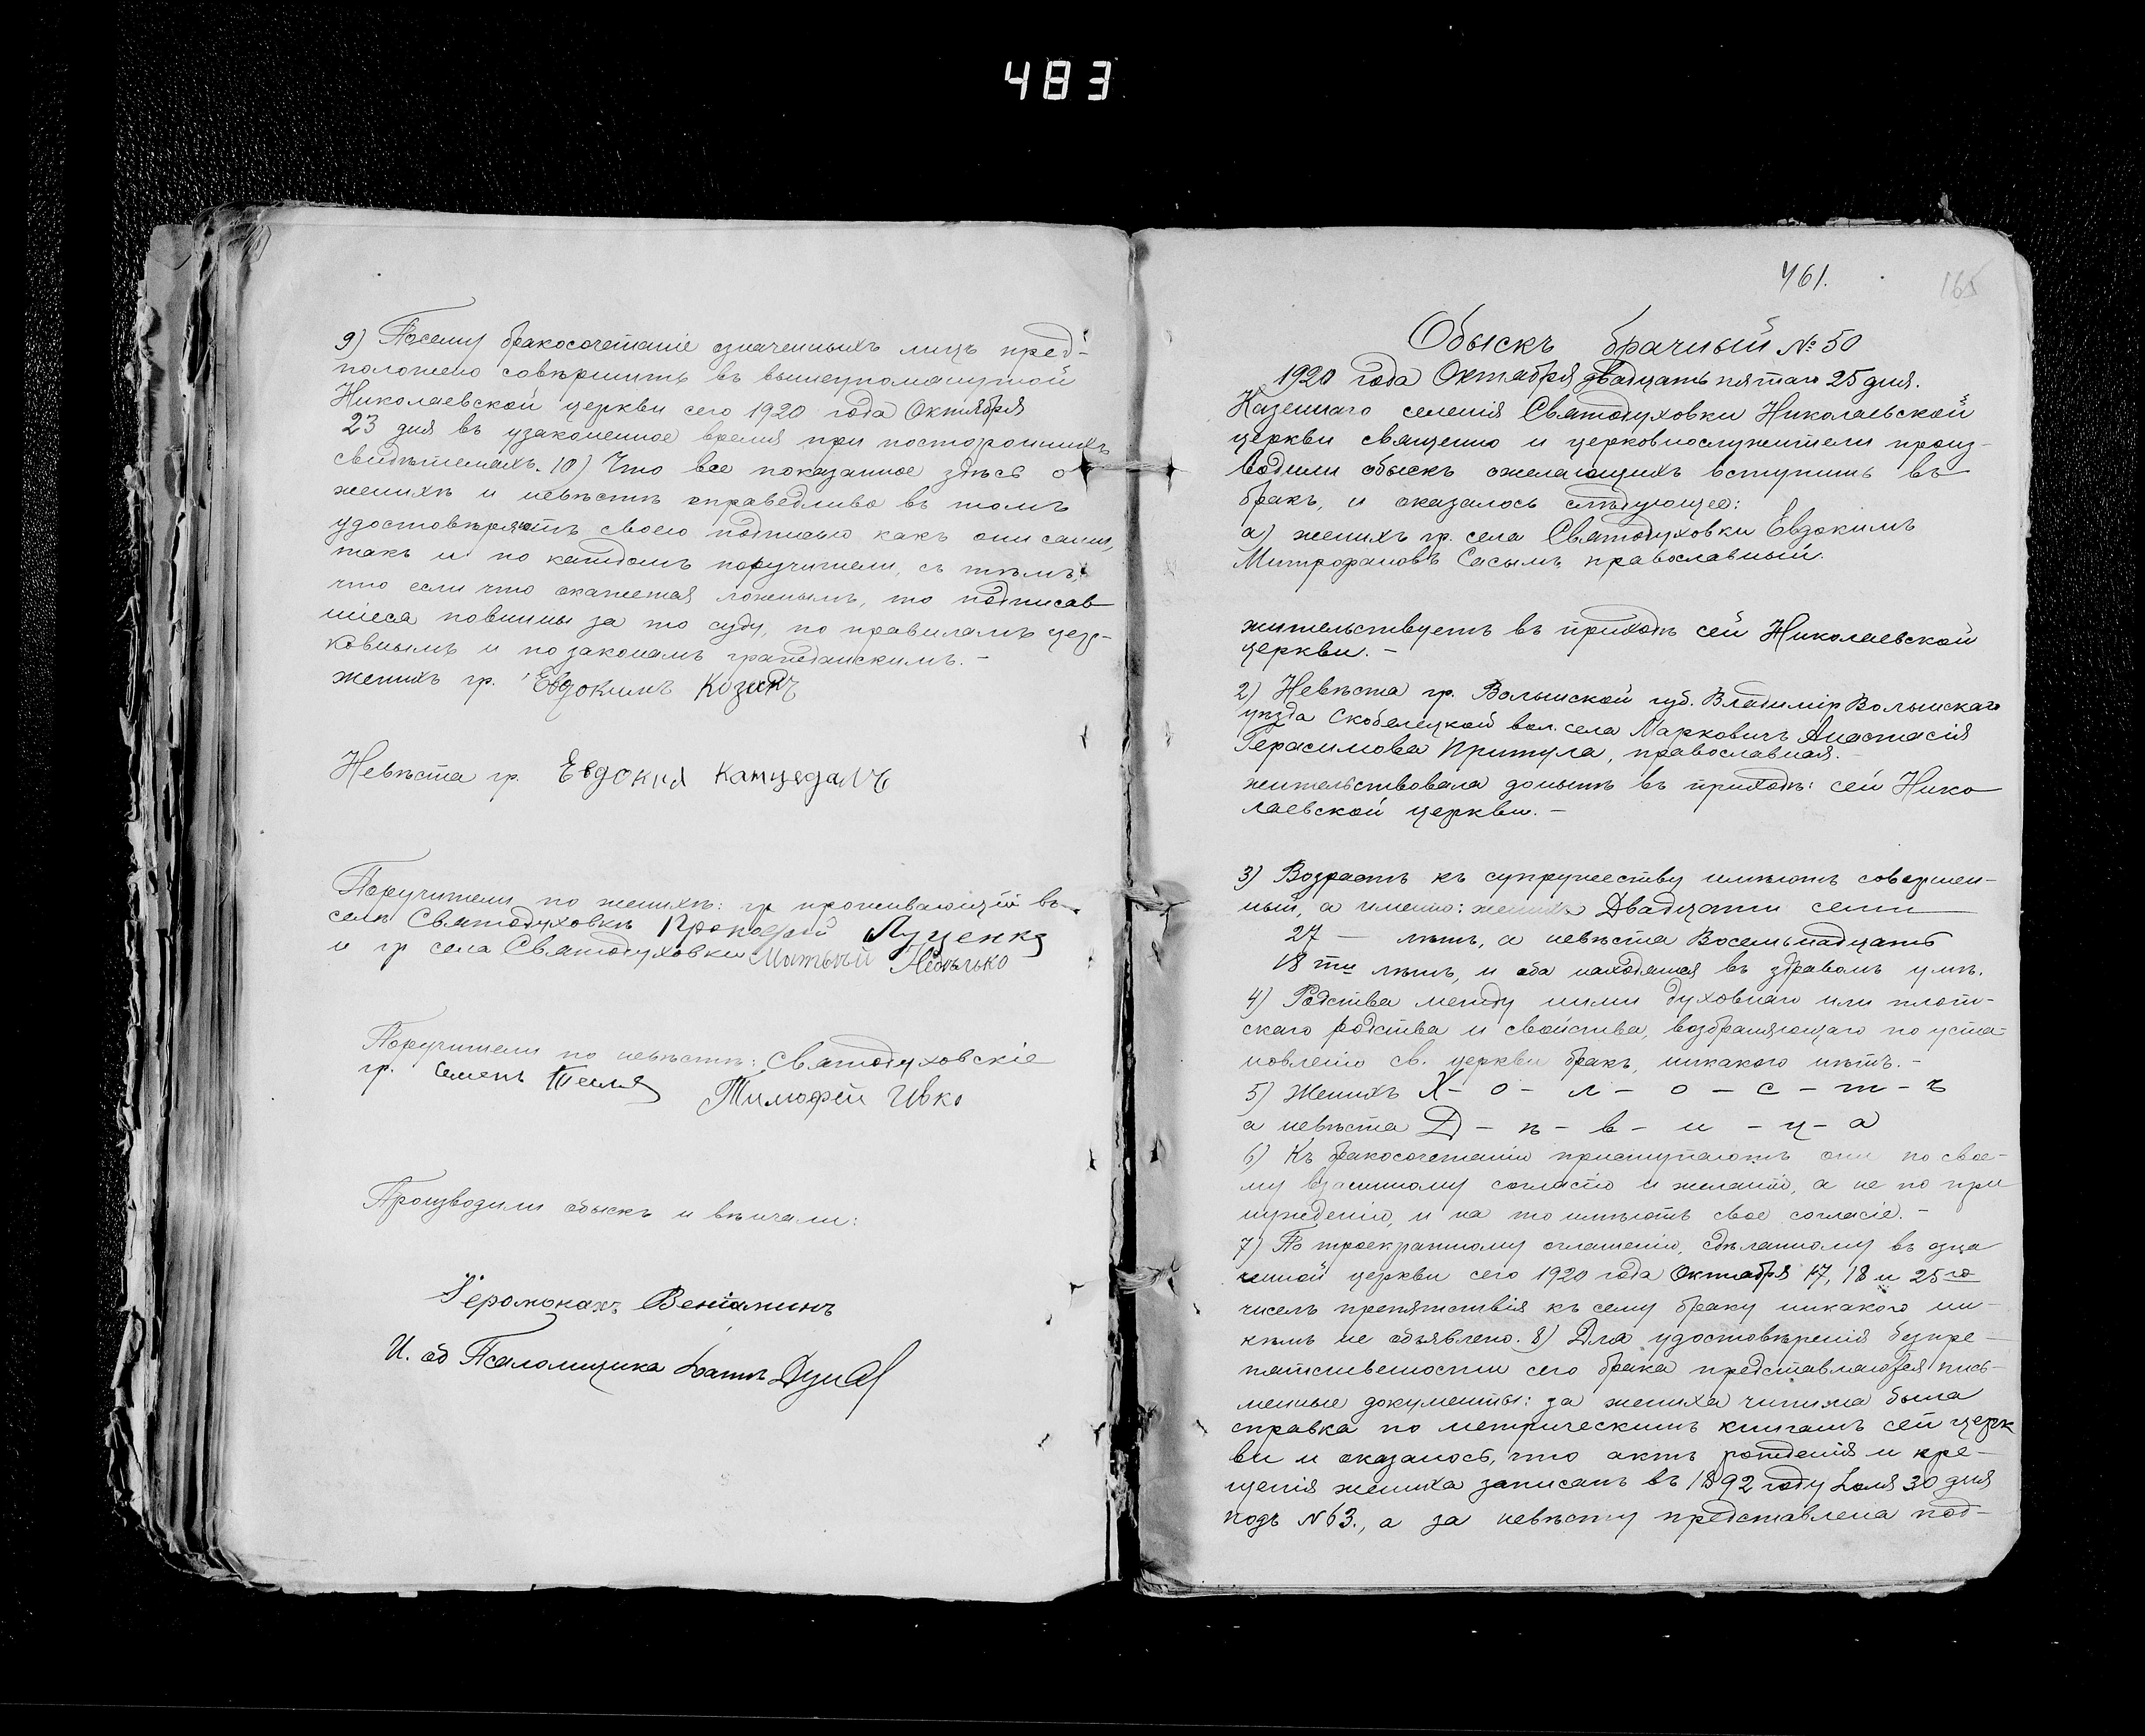 483
9) Посему бракосочетаніе означенныхъ лицъ пред-
положено совѣршить въ вышеупомянутой
Николаевской церкви сего 1920 года Октября
23 дня въ узаконенное время при постороннихъ
свидѣтеляхъ. 10) Что все показанное здѣсь о
женихѣ и невѣстѣ справедливо въ томъ
удостовѣряютъ своею подписью какъ они сами,
такъ и по каждомъ поручители, съ тѣмъ,
что если что окажется ложнымъ, то подписав
шіеся повинны за то суду, по правиламъ цер-
ковнымъ и по законамъ гражданскимъ. -
женихъ гр. Евдокимъ Козакъ
Невѣста гр. Евдокия Канцедалъ
Поручители по женихѣ: гр проживающій въ
селѣ Святодуховкѣ Прокофій Луценко
и гр села Святодуховки Матвѣй
Поручители по невѣстѣ: Святодуховскіе
гр. Семенъ Тимофей Ивко
Производили обыскъ и вѣнчали:
Іеромонахъ Веніаминъ
И. об Псаломщика
461.
165
Обыскъ брачный № 50
1920 года Октября двадцать пятаго 25 дня.
Казеннаго селенія Святодуховки Николаевской
церкви священно и церковнослужители произ-
водили обыскъ желающихъ вступить въ
бракъ, и оказалось слѣдующее:
а) женихъ гр. села Святодуховки Евдокимъ
Митрофановъ Сасымъ, православный.
жительствуетъ въ приходѣ сей Николаевской
церкви. -
2) Невѣста гр. Волынской губ. Владимір Волынскаго
уѣзда Скобелецкой вол. села Марковичъ Анастасія
Герасимова Притула, православная. -
жительствовала донынѣ въ приходѣ: сей Нико
лаевской церкви. -
3) Возрастъ къ супружеству имѣютъ совершен-
ный, а именно: женихъ Двадцати семи
27 - лѣтъ, а невѣста Восемьнадцать
18 ти лѣтъ, и оба находятся въ здравомъ умѣ.
4) Родства между ними духовнаго или плот-
скаго родства и свойства, возбраняющаго по уста-
новленію св. церкви бракъ, никакого нѣтъ. -
5) Женихъ Х - о - л - о - с - т - ъ
а невѣста Д - ѣ - в - и - ц - а
6) Къ бракосочетанію приступаютъ они по свое-
му взаимному согласію и желанію, а не по при
нужденію, и на то имѣютъ свое согласіе. -
7) По троекратному оглашенію, сдѣланному въ озна
ченной церкви сего 1920 года Октября 17, 18 и 25 го
числъ препятствія къ сему браку никакого ни-
кѣмъ не объявлено. 8) Для удостовѣренія безпре-
пятственности сего брака представляются пись-
менные документы: за жениха чинима была
справка по метрическимъ книгамъ сей церк
ви и оказалось, что актъ рожденія и кре-
щенія жениха записанъ въ 1892 году Іюля 30 дня
подъ № 63., а за невѣсту представлена под-